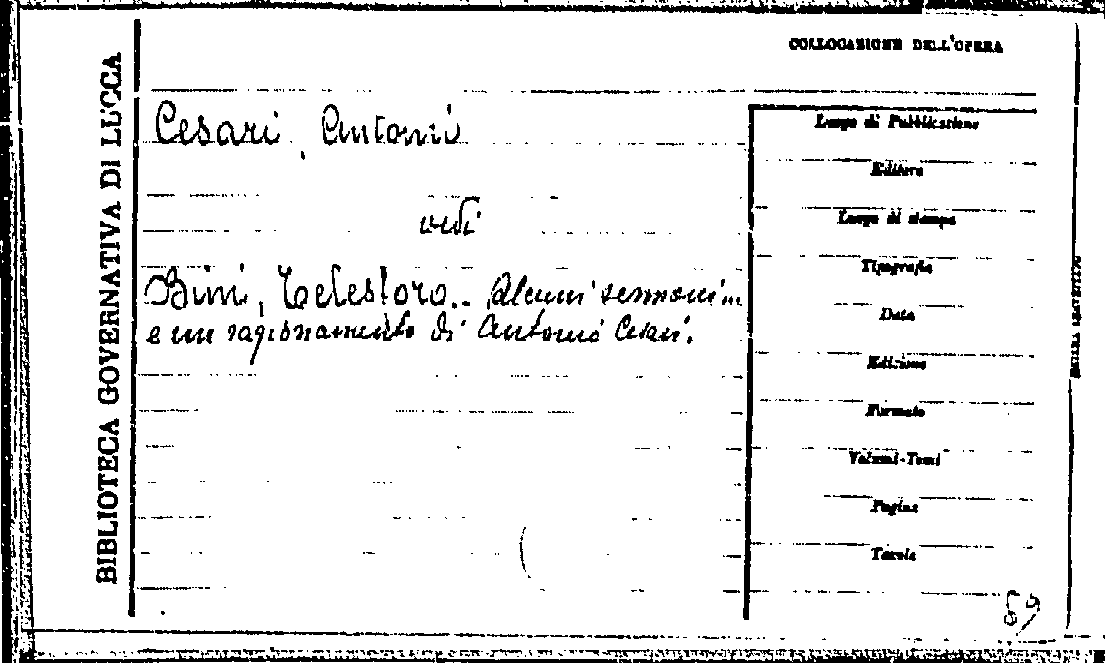 BIBLIOTECA GOVERNATIVA DI LUCCA
COLLOCAZIONE DELL'OPERA
Cesari, Antoni
vedi
Bini, Telesforo.. Alcuni sermoni in
e un ragionamento di Antonio Cesari.
Luogo di Pubblicazione
Editore
Luogo di stampa
Tipografia
Data
Edizione
Formato
Volumi-Tomi
Pagine
Tavole
59